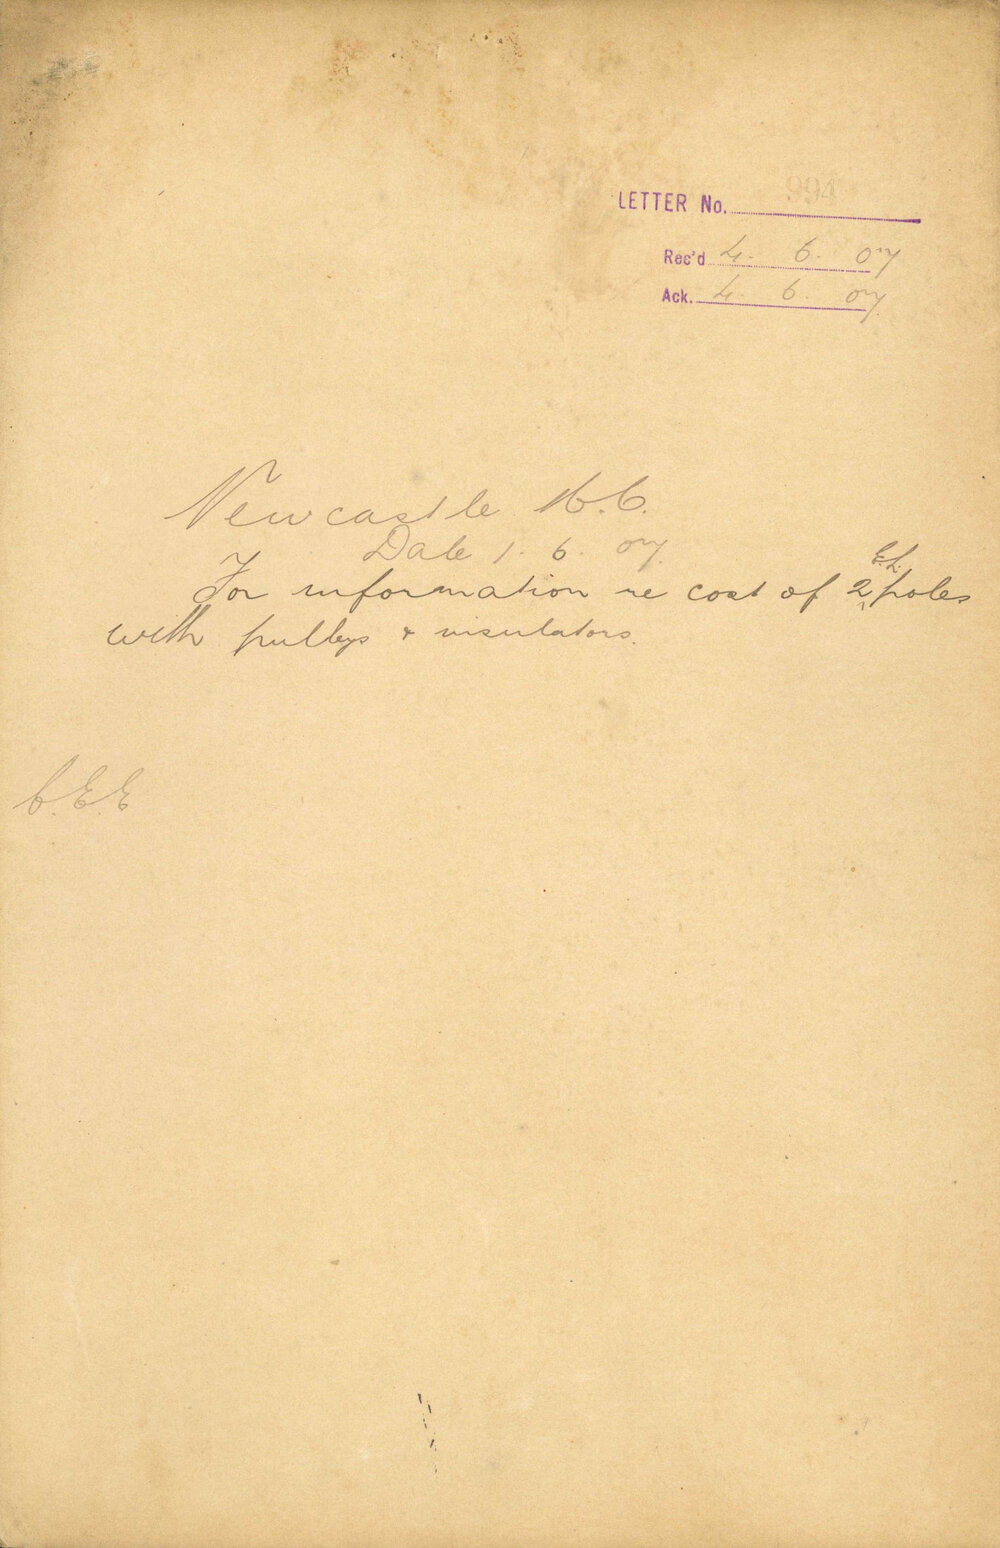 LETTER No. 994
Rec'd 4. 6. 07
Ack. 4 6. 07
Newcastle
Date 1. 6. 07
For information re cost of 2 E.L. poles
with pulleys & insulators.
C.E.E